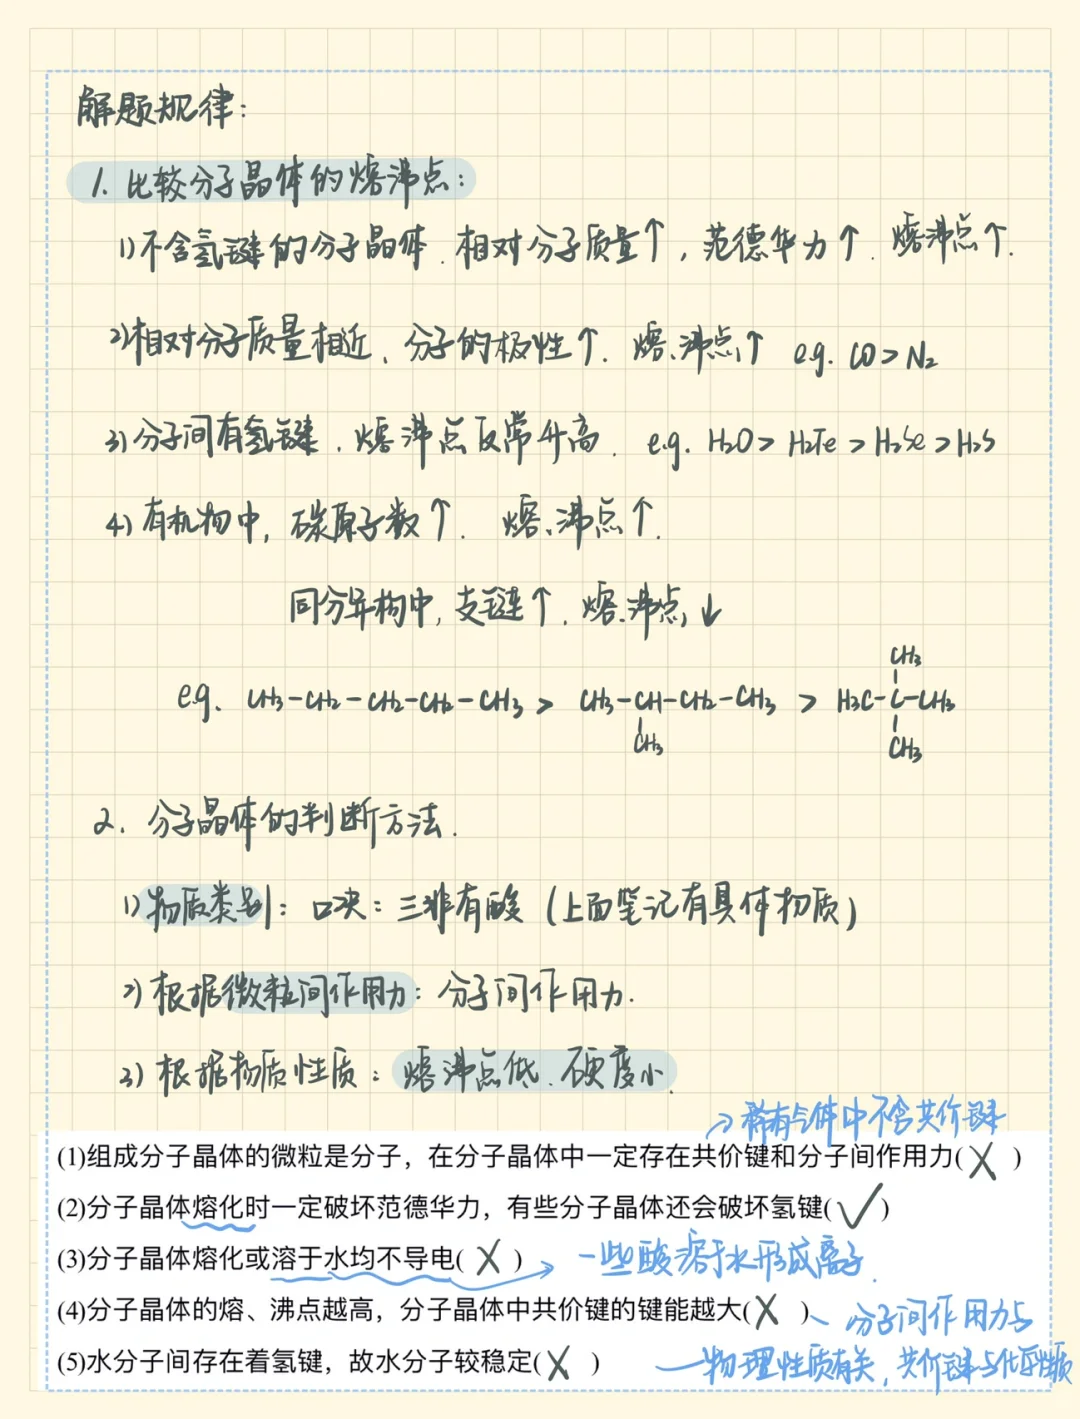 解题规律:
1. 比较分子晶体的熔沸点:
1)不含氢键的分子晶体.相对分子质量↑,范德华力↑.熔沸点↑.
2)相对分子质量相近、分子的极性↑.熔、沸点↑ e.g. CO>N₂
3)分子间有氢键.熔沸点反常升高. e.g. H₂O>H₂Te>H₂Se>H₂S
4)有机物中,碳原子数↑.熔、沸点↑.
同分异构中,支链↑.熔、沸点↓
CH₃
e.g. CH₃-CH₂-CH₂-CH₂-CH₃ > CH₃-CH-CH₂-CH₃ > H₃C-C-CH₃
CH₃ CH₃
2. 分子晶体的判断方法.
1)物质类别:口决:三非有酸(上面笔记有具体物质)
2)根据微粒间作用力:分子间作用力.
3)根据物质性质:熔沸点低、硬度小.
→稀有气体中不含共价键
(1)组成分子晶体的微粒是分子，在分子晶体中一定存在共价键和分子间作用力(X)
(2)分子晶体熔化时一定破坏范德华力，有些分子晶体还会破坏氢键(✓)
(3)分子晶体熔化或溶于水均不导电(X)→一些酸溶于水形成离子.
(4)分子晶体的熔、沸点越高，分子晶体中共价键的键能越大(X)、分子间作用力与
(5)水分子间存在着氢键，故水分子较稳定(X) 物理性质有关,共价键与化学性质